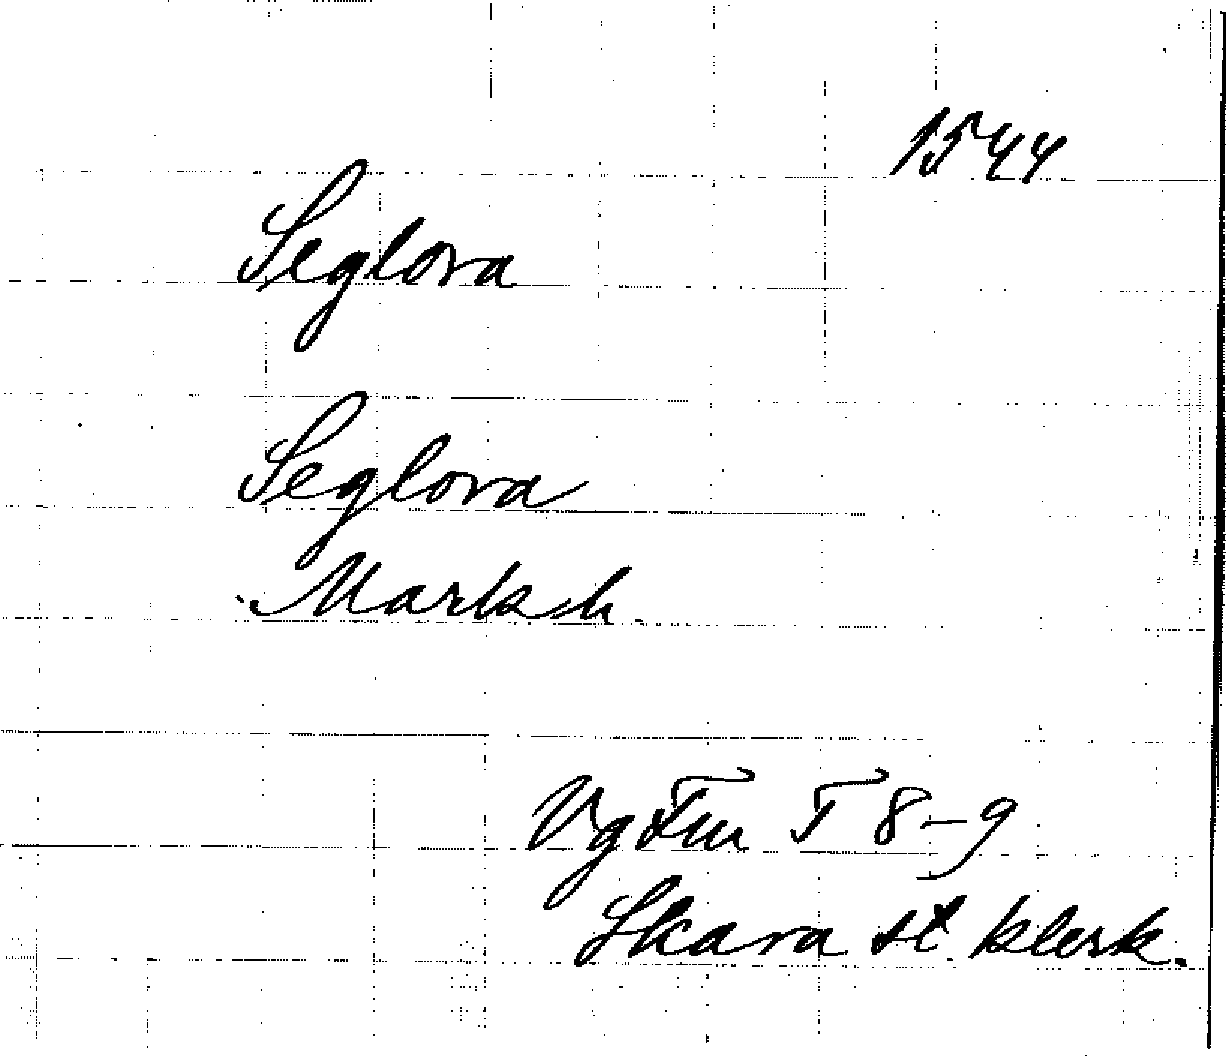 1544
Seglora
Seglora
Marks h.
Vg Fm T 8-9
Skara st. klerk.